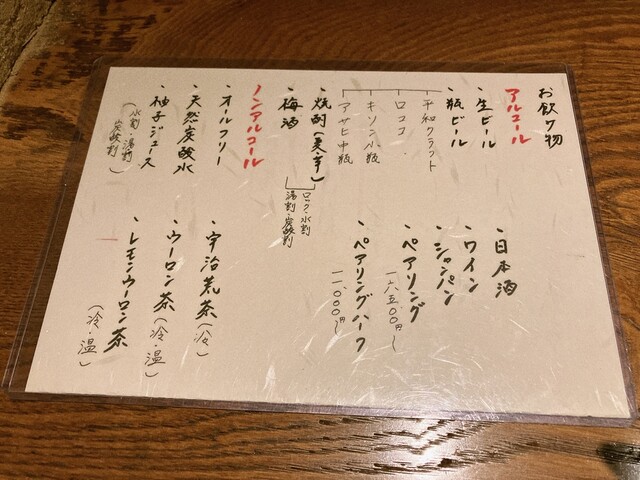 お飲り物
アルコール
・生ビール
・瓶ビール
平和クラフト
ロココ
キリン小瓶
アサヒ中瓶
・焼酎(麦・芋)
・梅酒
ロック・水割
湯割・炭酸割
・日本酒
・ワイン
・シャンパン
・ペアリング
一六五〇〇円〜
・ペアリングハーフ
一一、〇〇〇円〜
ノンアルコール
・オールフリー
・天然炭酸水
・柚子ジュース
(水割・湯割
炭酸割)
・宇治荒茶(冷)
・ウーロン茶(冷・温)
・レモンウーロン茶
(冷・温)